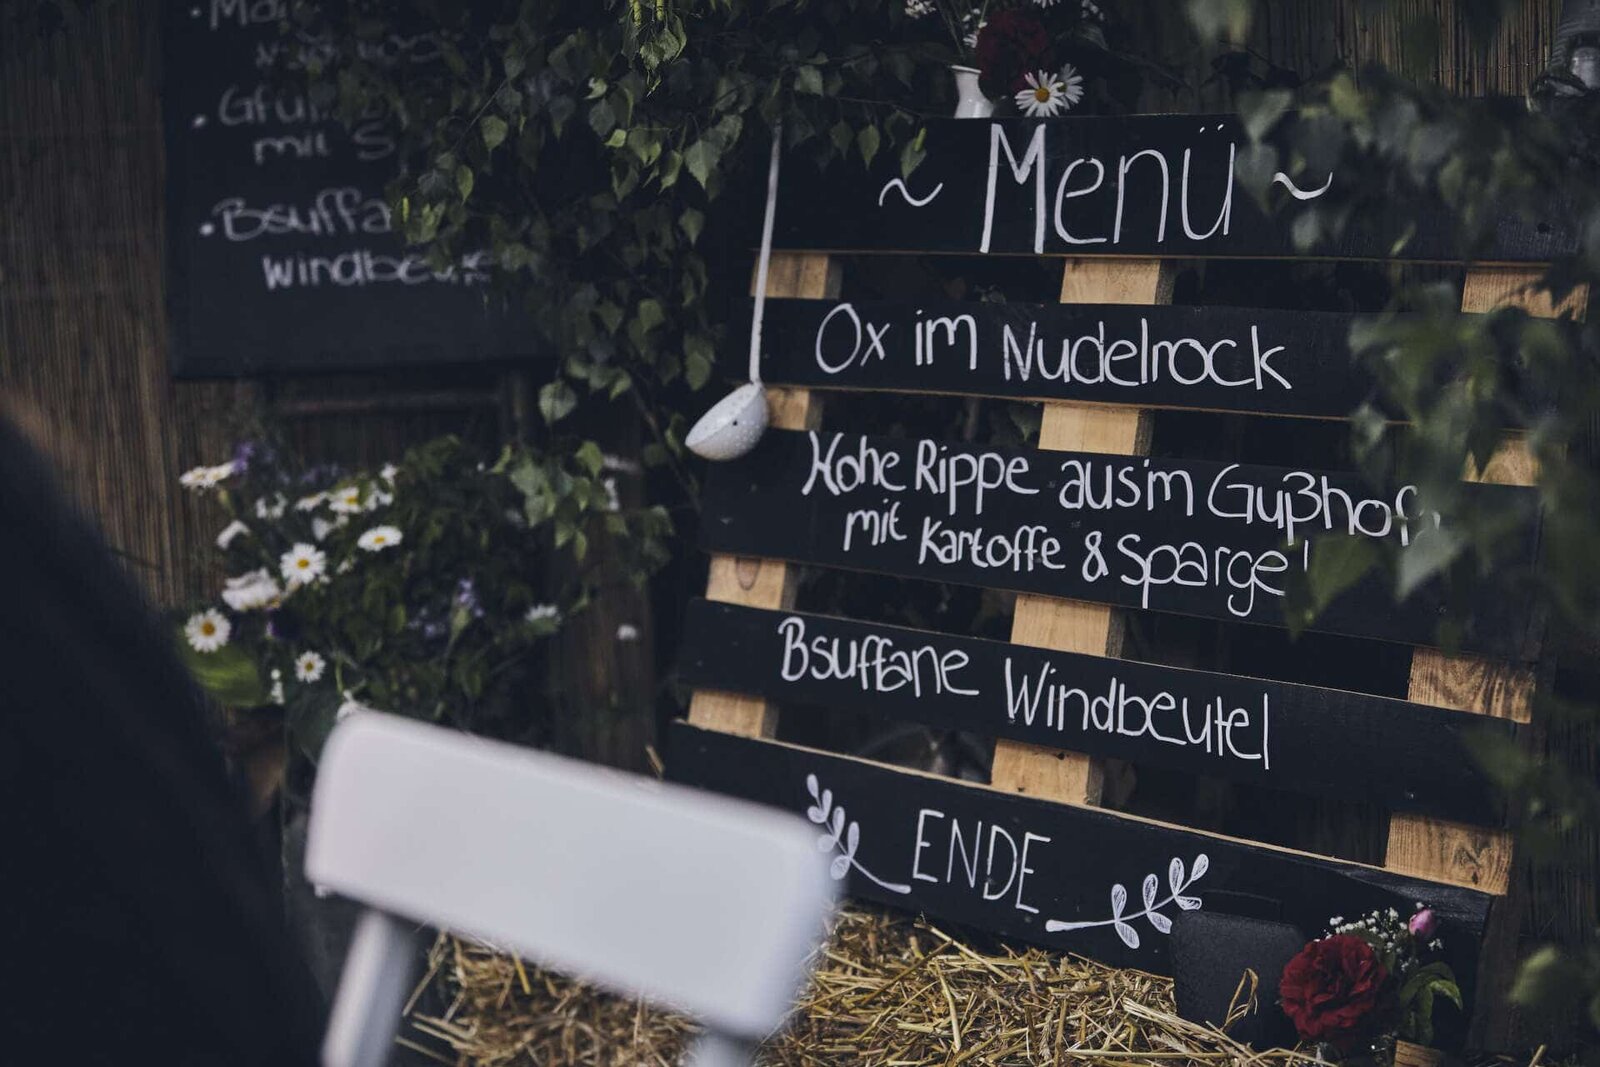 mit
Bsuffa
~ Menü ~
Ox im Nudelrock
Hohe Rippe aus'm Gußhof
mit Kartoffe & Spargel
Bsuffane Windbeutel
ENDE